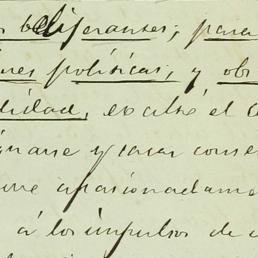 beligerantes; para
nes políticas; y ob
lidad, excitó el c
narse y sacar conse
apasionadame
á los impulsos de